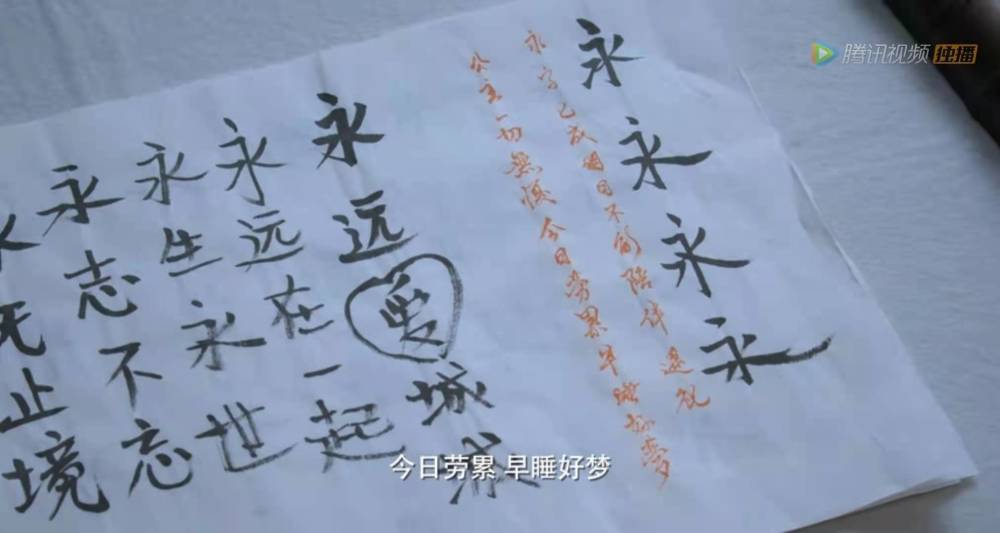 腾讯视频 独播
永永永永
永字已成日不能陪伴遥祝
公主一切無今日劳累早睡好梦
永远爱城城
永远在一起
永生永世
永志不忘
永无止境
今日劳累 早睡好梦